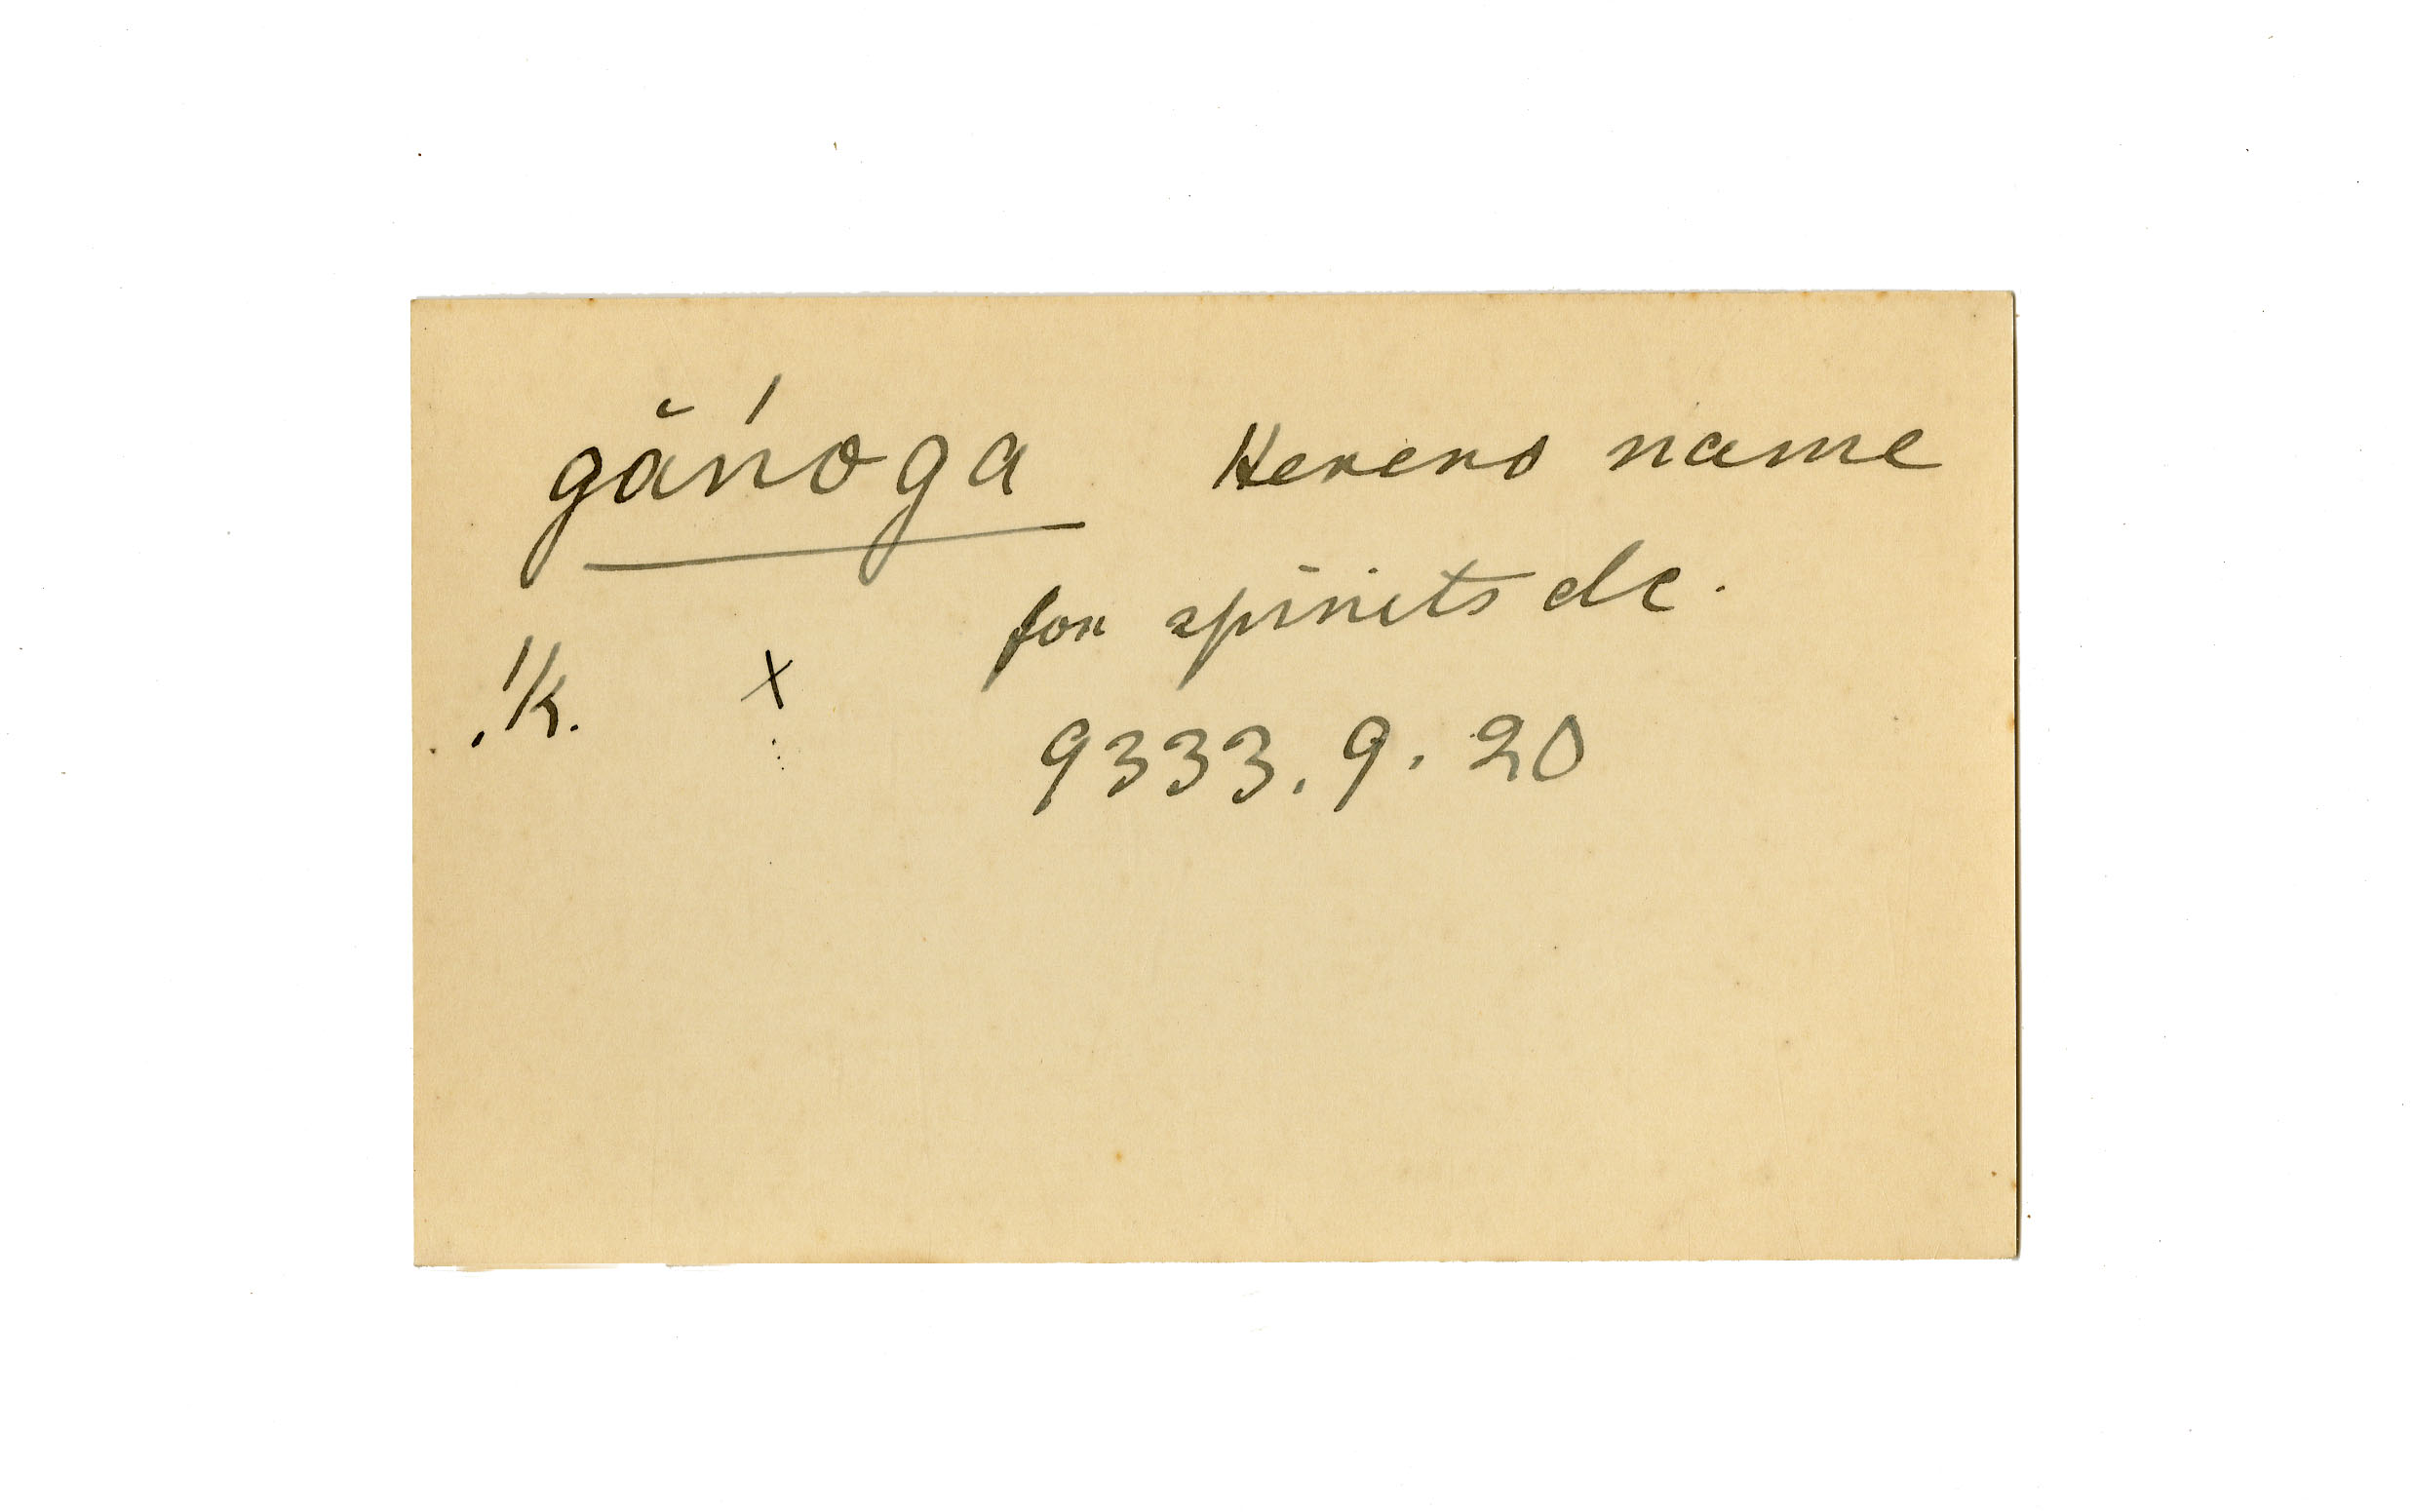 gă'noga Herero name
for spirits etc.
!k. X
9333. 9. 20